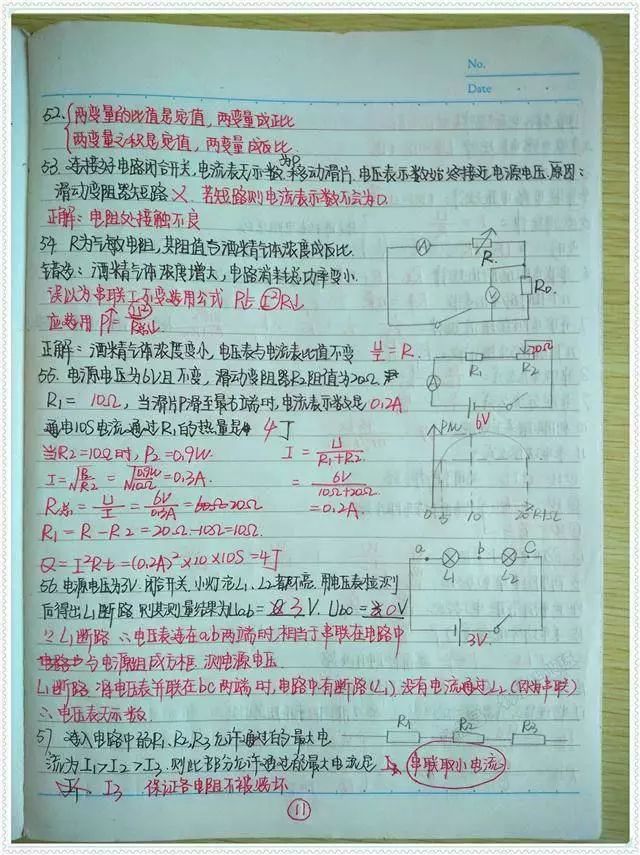 No.
Date
52. 两变量的比值是定值，两变量成正比
两变量之积是定值，两变量成反比.
53. 连接好电路闭合开关，电流表无示数，移动滑片P，电压表示数始终接近电源电压，原因：
滑动变阻器短路 × 若短路则电流表示数不会为0.
正解：电阻处接触不良
54. R为气敏电阻，其阻值与酒精气体浓度成反比.
错选：酒精气体浓度增大，电路消耗总功率变小.
误以为串联I不变套用公式 P总=I²R总↓
应套用 P总↑=U²/R总↓
A
R
V
R₀
正解：酒精气体浓度变小，电压表与电流表比值不变 U/I=R.
55. 电源电压为6V且不变，滑动变阻器R₂阻值为20Ω
R₁= 10Ω，当滑片P滑至最右端时，电流表示数是 0.2A
通电10S电流通过R₁的热量是 4丁
A
R₁
R₂
20Ω
6V
当R2=10Ω时，P₂=0.9W.
I=√P₂/R₂=√0.9W/10Ω=0.3A.
R总=U/I=6V/0.3A=20Ω
R₁=R-R₂=20Ω-10Ω=10Ω.
I=U/R₁+R₂
=6V/10Ω+20Ω
=0.2A.
P/W
10
Q=I²R·t=(0.2A)²×10×10S=4丁
56. 电源电压为3V. 闭合开关，小灯泡L₁、L₂都不亮. 用电压表检测
后得出L₁断路，则其测量结果为Uab= 3V. Ubc= 0V
∵L₁断路 ∴电压表连在ab两端时，相当于串联在电路中
与电源组成方框. 测电源电压.
a
b
C
L₁
L₂
3V
L₁断路，将电压表并联在bc两端时，电路中有断路(L₁). 没有电流通过L₂(因为串联)
∴电压表无示数.
57. 连入电路中的R₁、R₂、R₃允许通过的最大电
流为I₁>I₂>I₃. 则此部分允许通过的最大电流是 (串联取小电流)
R₁
R₂
R₃
I₃ 保证各电阻不被烧坏
11